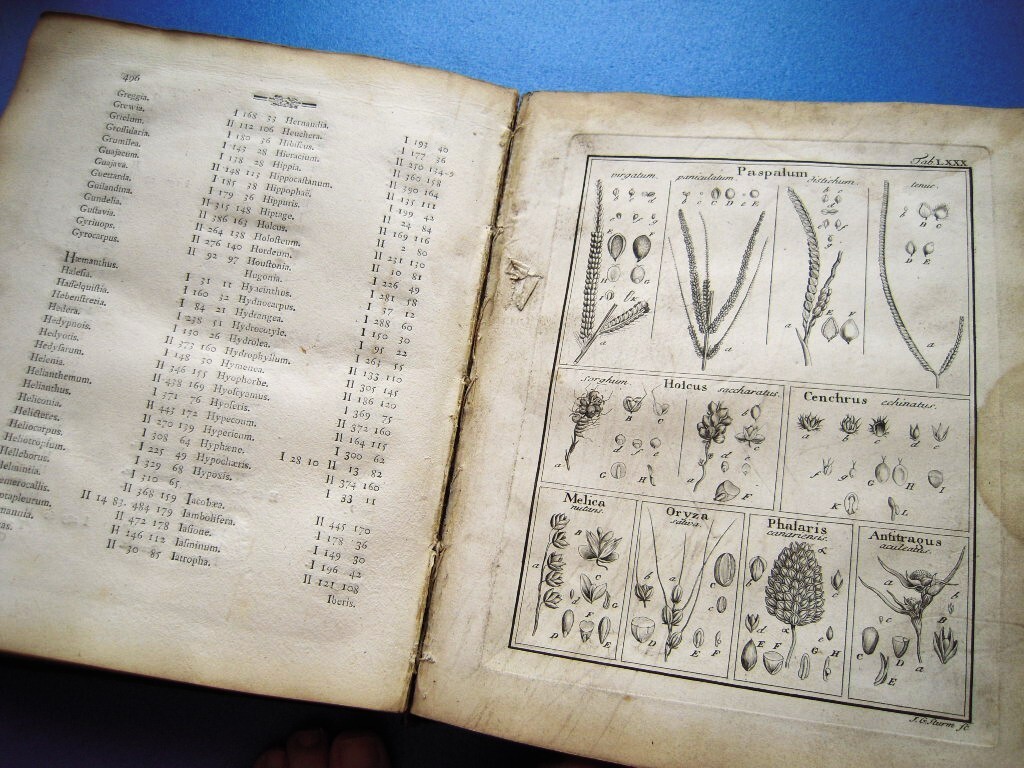 496
Greggia. I 168 33 Hernandia. I 193 40
Grewia. II 112 106 Heuchera. I 177 36
Grielum. I 180 36 Hibiſcus. II 250 134-9
Groſſularia. I 143 28 Hieracium. II 360 158
Grumilea. I 138 28 Hippia. II 390 164
Guajacum. II 148 113 Hippocaſtanum. II 135 111
Guajava. I 185 38 Hippophaë. I 199 42
Guettarda. I 179 36 Hippuris. I 24 84
Guilandina. II 315 148 Hiptage. II 169 116
Gundelia. II 386 163 Holcus. II 2 80
Guſtavia. II 264 138 Holoſteum. II 231 130
Gyrinops. II 276 140 Hordeum. II 10 81
Gyrocarpus. II 92 97 Houſtonia. I 226 49
Hugonia. I 281 58
Hæmanthus. I 31 11 Hyacinthus. I 37 12
Haleſia. I 160 32 Hydnocarpus. I 288 60
Haſſelquiſtia. I 84 21 Hydrangea. I 150 30
Hebenſtretia. I 238 51 Hydrocotyle. I 95 22
Hedera. I 150 26 Hydrolea. I 263 55
Hedypnois. II 373 160 Hydrophyllum. II 133 110
Hedyotis. I 148 30 Hymenea. II 305 145
Hedyſarum. II 346 155 Hyophorbe. II 186 120
Helenia. II 438 169 Hyoſcyamus. I 369 75
Helianthemum. I 371 76 Hyoſeris. II 372 160
Helianthus. II 443 172 Hypecoum. II 164 115
Heliconia. II 270 139 Hypericum. I 300 62
Helicteres. I 308 64 Hyphæne. I 28 10 II 13 82
Heliocarpus. I 225 49 Hypochæris. II 374 160
Heliotropium. I 329 68 Hypoxis. I 33 11
Helleborus. I 310 65.
Helmintia. II 368 159 Iacobæa. II 445 170
emerocallis. II 14 83. 484 179 Iambolifera. I 178 36
ptapleurum. II 472 178 Iaſione. I 149 30
mannia. II 146 112 Iaſminum. I 196 42
as. II 30 85 Iatropha. II 121 108
Iberis.
Tab. LXXX
Paspalum
virgatum. paniculatum distichum. tenue.
sorghum. Holcus saccharatus.
Cenchrus echinatus.
Melica
nutans.
Oryza
sativa.
Phalaris
canariensis.
Antitragus
aculeatus.
J. G. Sturm sc.